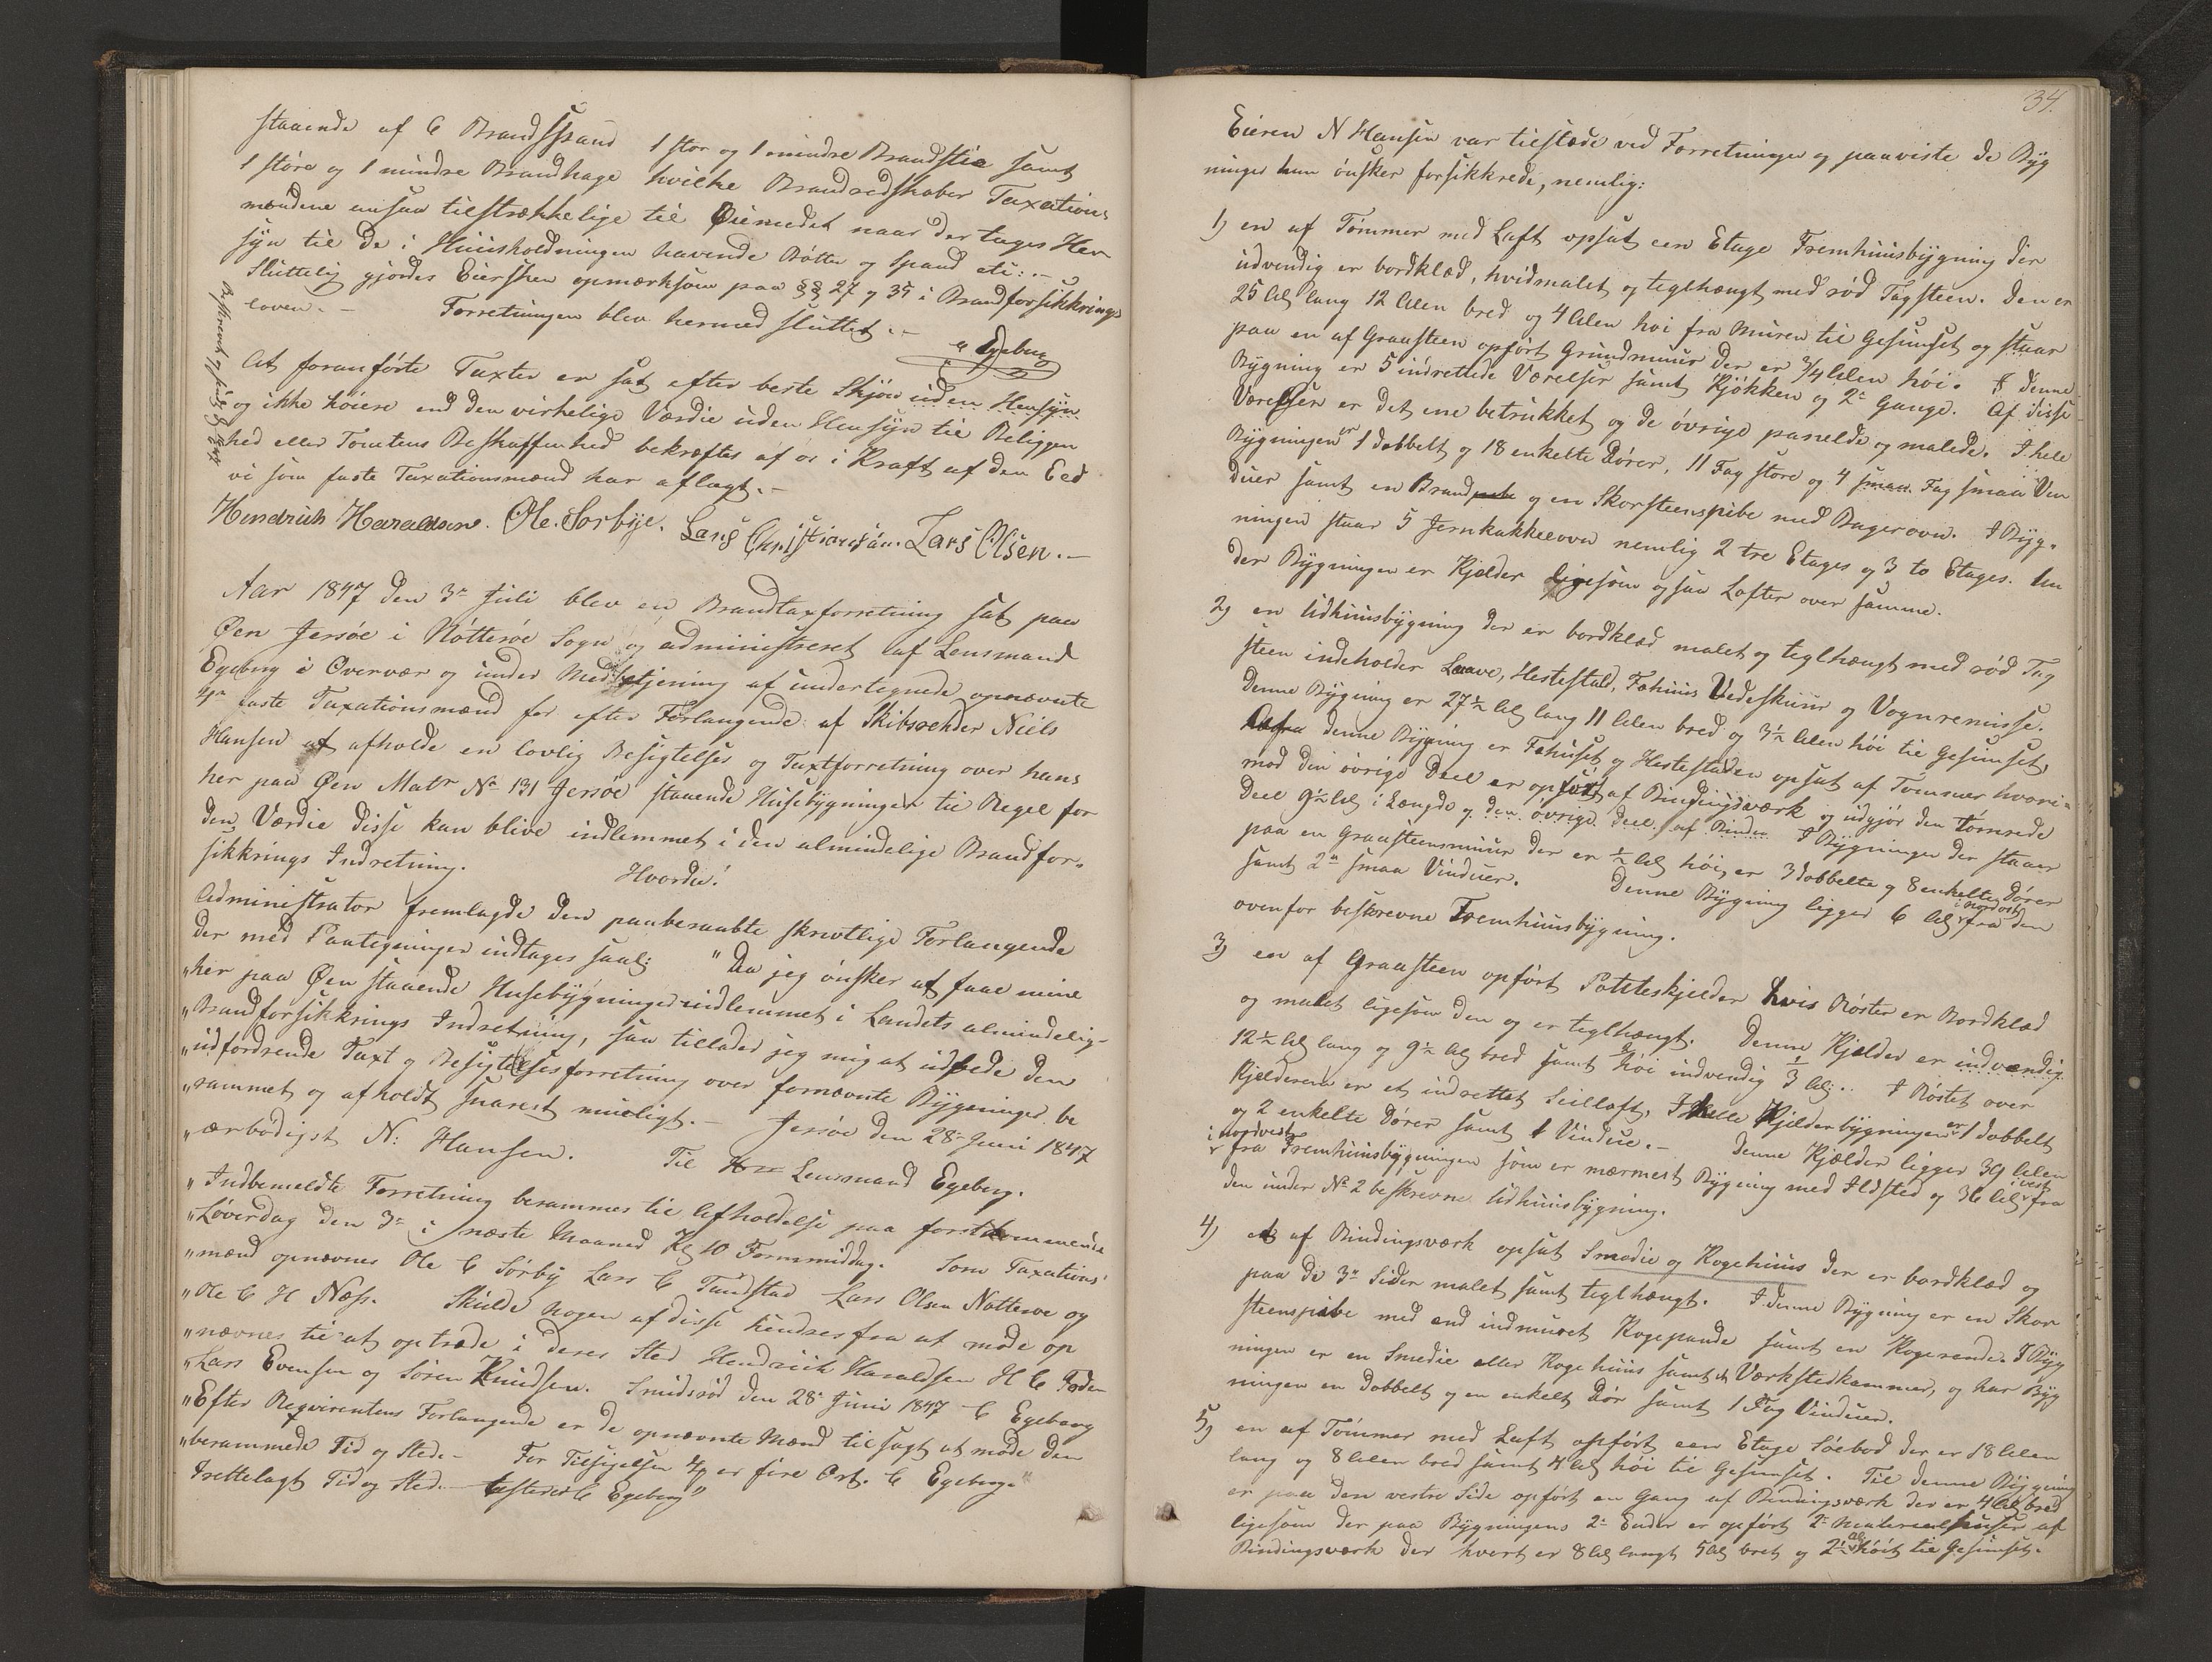 staaende af 6 Brandspand 1 stor og 1 mindre Brandstie samt
1 store og 1 mindre Brandhage hvilke Brandredskaber Taxations
mændene ansaa tilstrækkelige til Øiemedet naar der tages Hen
syn til de i Huusholdningen havende Bøtter og Spand etc: .-
Sluttelig gjordes Eiersken opmærksom paa §§ 27 og 35 i Brandforsikkrings
loven. - Forretningen blev hermed sluttet. -
C Egeberg
At foranførte Taxter er sat efter beste Skjøn uden Hensyn
og ikke høiere end den virkelige Værdie uden Hensyn til Beliggen
hed eller Tomtens Beskaffenhed bekræftes af os i Kraft af den Eed
vi som faste Taxationsmænd har aflagt. -
Hendrich Haraldsen. Ole. Sorbye. Lars Christiansen. Lars Olsen. -
Aar 1847 den 3de Juli blev en Brandtaxforretning sat paa
Øen Jersøe i Nøtterøe Sogn og administreret af Lensmand
Egeberg i Overvær og under Medbetjening af undertegnede opnævnte
4re faste Taxationsmænd for efter Forlangende af Skibsrehder Niels
Hansen at afholde en lovlig Besigtelses og Taxtforretning over hans
her paa Øen Matr No 131 Jersøe staaende Husebygninger til Regel for
den Værdie disse kan blive indlemmet i den almindelige Brandfor-
sikkrings Indretning. Hvorda!
Administrator fremlagde den paaberaabte skrivtlige Forlangende
der med Paategninger indtages saal: "Da jeg ønsker at faae mine
"her paa Øen staaende Husebygninger indlemmet i Landets almindelig-
"Brandforsikkrings Indretning, saa tillader jeg mig at udbede den
"udfordrende Taxt og Besigtelsesforretning over fornævnte Bygninger be
"rammet og afholdt snarest mueligt. - Jersøe den 28de Juni 1847
"ærbødigst N: Hansen. Til Lensmand Egeberg.
"Indbemeldte Forretning berammes til Afholdelse paa førstkommende
"Løverdag den 3de i næste Maaned Kl 10 Formmiddag. Som Taxations
"mænd opnævnes Ole C Sørby Lars C Tundstad Lars Olsen Nøtterøe og
"Ole C H Næss. Skulde nogen af disse hindres fra at møde op
"nævnes til at optræde i deres Sted Hendrich Haraldsen H C Foden
"Lars Evensen og Søren Knudsen. Smidsrød den 28de Juni 1847 C Egeberg
"Efter Reqvirentens Forlangende er de opnævnte Mænd tilsagt at møde den
"berammede Tid og Sted. - For Tilsigelsen er fire Ort. C Egeberg."
Irettelagt Tid og Sted. - testerer C Egeberg"
34.
Eieren N Hansen var tilstæde ved Forretningen og paaviste de Byg
ninger han ønsker forsikkrede, nemlig:
1) en af Tømmer med Laft opsat een Etage Fremhuusbygning der
udvendig er bordklæd, hvidmalet og teglhængt med rød Tagsteen. Den er
25 Al lang 12 Alen bred og 4 Alen høi fra Muren til Gesimset og staar
paa en af Graasteen opført Grundmuur der er 3/4 Alen høi. I denne
Bygning er 5 indrettede Værelser samt Kjøkken og 2de Gange. Af disse
Værelser er det ene betrukket og de øvrige panelde og malede. I hele
Bygningen er 1 dobbelt og 18 enkelte Dører, 11 Fag store og 4 smaa Fag smaa Vin
duer samt en Brand og en Skorsteenspibe med Bagerovn. I Byg-
ningen staar 5 Jernkakkelovn nemlig 2 tre Etages og 3 to Etages. Un
der Bygningen er Kjelder ligesom ogsaa Lofter over samme.
2) en Udhuusbygning der er bordklæd malet og teglhængt med rød Tag
steen indeholder Laave, Hestestald, Fæhuus Vedeskuur og Vognremisse.
Denne Bygning er 27½ Al lang 11 Alen bred og 3½ Alen høi til Gesimset,
denne Bygning er Fæhuset og Hestestalden opsat af Tømmer hvori-
mod den øvrige Deel er opført af Bindingsværk og udgjør den tømrede
Deel 9½ Al i Længde og den øvrige Deel af Binden I Bygningen der staaer
paa en Graasteensmuur der er ½ Al høi, er 3 dobbelte og 8 enkelte Dører
samt 2de smaa Vinduer. Denne Bygning ligger 6 Al i Nordost fra den
ovenfor beskrevne Fremhuusbygning.
3) en af Graasteen opført Poteteskjelder hvis Røster er Bordklæd
og malet ligesom den og er teglhængt. Denne Kjelder er indvendig
12½ Al lang og 9½ Al bred samt høi indvendig 3 Al: . I Røstet over
Kjelderen er et indrettet Seilloft, I hele Kjelderbygningen er 1 dobbelt
og 2 enkelte Dører samt 1 Vindue. - Denne Kjælder ligger 39 Alen
i nordvest fra Fremhuusbygningen som er nærmest Bygning med Ildsted og 36 Al i vest fra
den under No 2 beskrevne Udhuusbygning.
4) et af Bindingsværk opsat Smedie og Kogehuus der er bordklæd og
paa de 3de Sider malet samt teglhængt. I denne Bygning er en Skor
steenspibe med end indmuret Kogepande samt en Kogerende. I Byg
ningen er en Smedie eller Koge huus samt et Værkstedkammer, og har Byg
ningen en dobbelt og en enkelt Dør samt 1 Fag Vinduer.
5) en af Tømmer med Laft opført een Etage Søebod der er 18 Alen
lang og 8 Alen bred samt 4 Al høi til Gesimset. Til denne Bygning
er paa den vestre Side opført en Gang af Bindingsværk der er 4 Al bred
ligesom der paa Bygningens 2de Ender er opført 2de Materialhuser af
Bindingsværk der hvert er 8 Al langt 5 Al bret og 2½ Al høit til Gesimset.